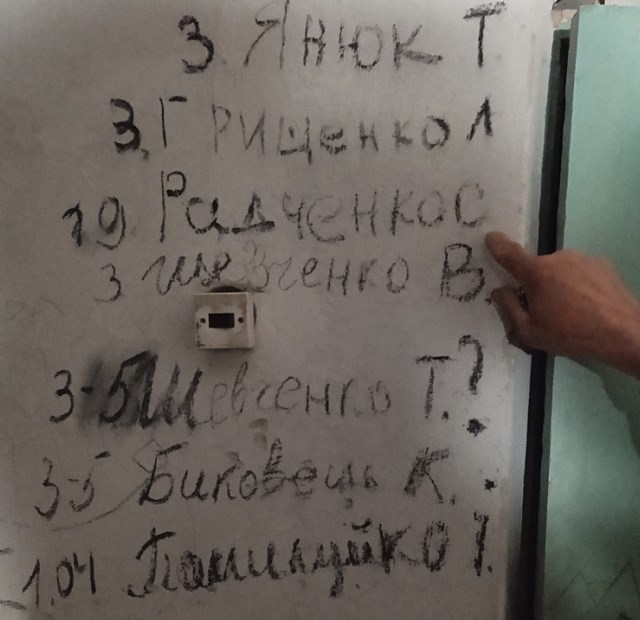 3. Янюк Т
3. Грищенко Л
19 Радченко С
3 Шевченко В.
3-5 Шевченко Т.?
3-5 Биковець К.
1.04 Помилуйко І.